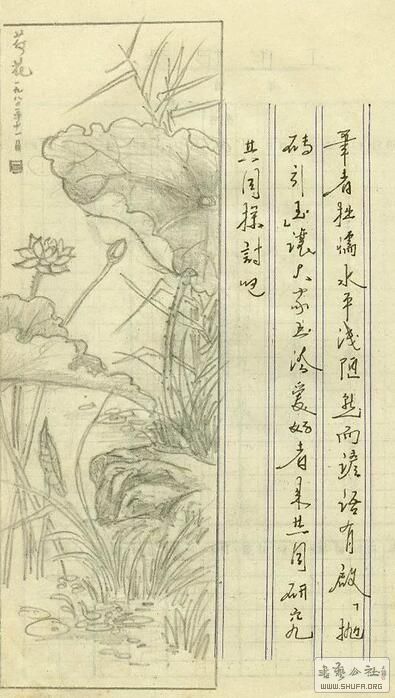 筆者拙懦水平浅陋然而諺语有啟「抛
砖引玉」讓大家书法爱好者来共同研究
共同探討吧
荷花 一九八二年十一月
书艺公社
WWW.SHUFA.ORG